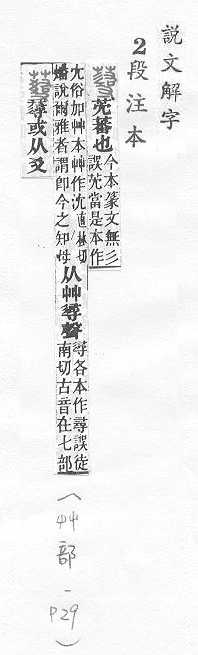 説文解字
2段注本
䕭 芫蕃也 今本篆文無彡誤芫當是本作
尤俗加艸本艸作沈直林切
燔說爾雅者謂卽今之知母
从艸𢒫聲 𢒫各本作尋誤徒南切古音在七部
䕭或从爻
(艸部-P29)